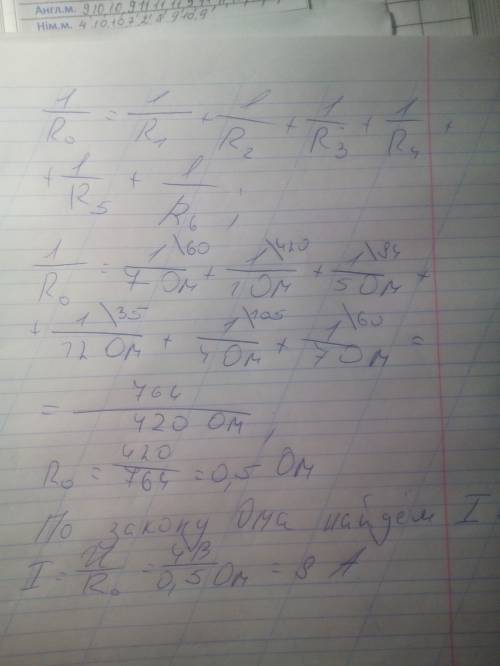 Англ.м. 9,10,10,9,11,11,11,9
Нім.м. 4,10,10,7,2,8,9,10,9
1/R₀ = 1/R₁ + 1/R₂ + 1/R₃ + 1/R₄ +
+ 1/R₅ + 1/R₆ ;
1/R₀ = 1\60/7 Ом + 1\420/1 Ом + 1\84/5 Ом +
+ 1\35/12 Ом + 1\105/4 Ом + 1\60/7 Ом =
= 764/420 Ом ,
R₀ = 420/764 = 0,5 Ом
По закону Ома найдём I.
I = U/R₀ = 4В/0,5 Ом = 8 А